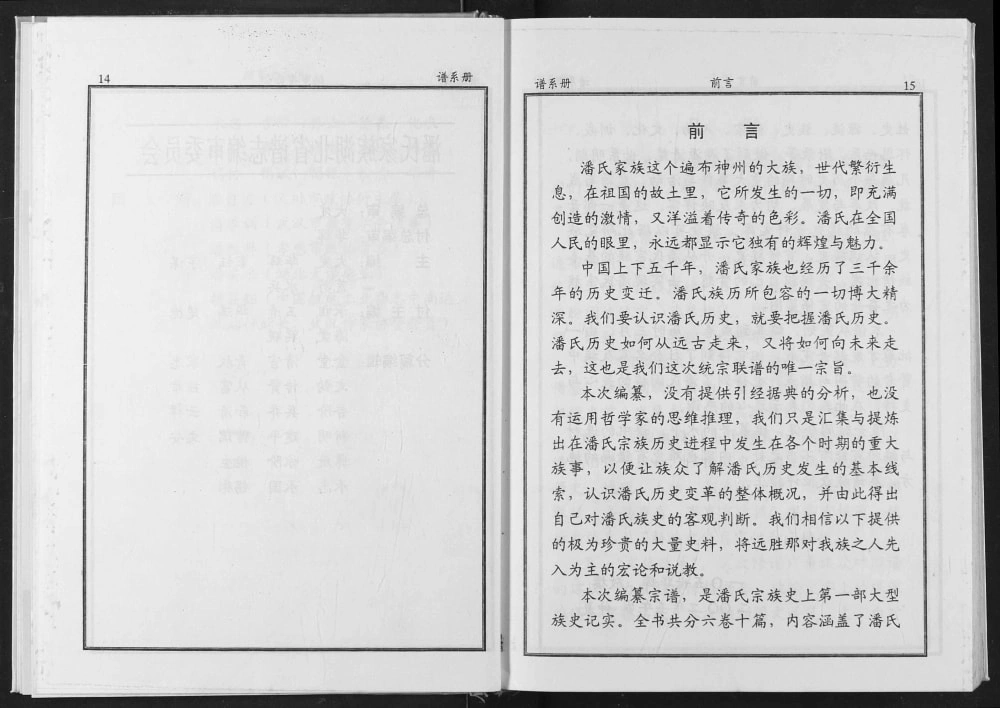 14
谱系册
谱系册
前言
15
前 言
潘氏家族这个遍布神州的大族，世代繁衍生
息，在祖国的故土里，它所发生的一切，即充满
创造的激情，又洋溢着传奇的色彩。潘氏在全国
人民的眼里，永远都显示它独有的辉煌与魅力。
中国上下五千年，潘氏家族也经历了三千余
年的历史变迁。潘氏族历所包容的一切博大精
深。我们要认识潘氏历史，就要把握潘氏历史。
潘氏历史如何从远古走来，又将如何向未来走
去，这也是我们这次统宗联谱的唯一宗旨。
本次编纂，没有提供引经据典的分析，也没
有运用哲学家的思维推理，我们只是汇集与提炼
出在潘氏宗族历史进程中发生在各个时期的重大
族事，以便让族众了解潘氏历史发生的基本线
索，认识潘氏历史变革的整体概况，并由此得出
自己对潘氏族史的客观判断。我们相信以下提供
的极为珍贵的大量史料，将远胜那对我族之人先
入为主的宏论和说教。
本次编纂宗谱，是潘氏宗族史上第一部大型
族史记实。全书共分六卷十篇，内容涵盖了潘氏